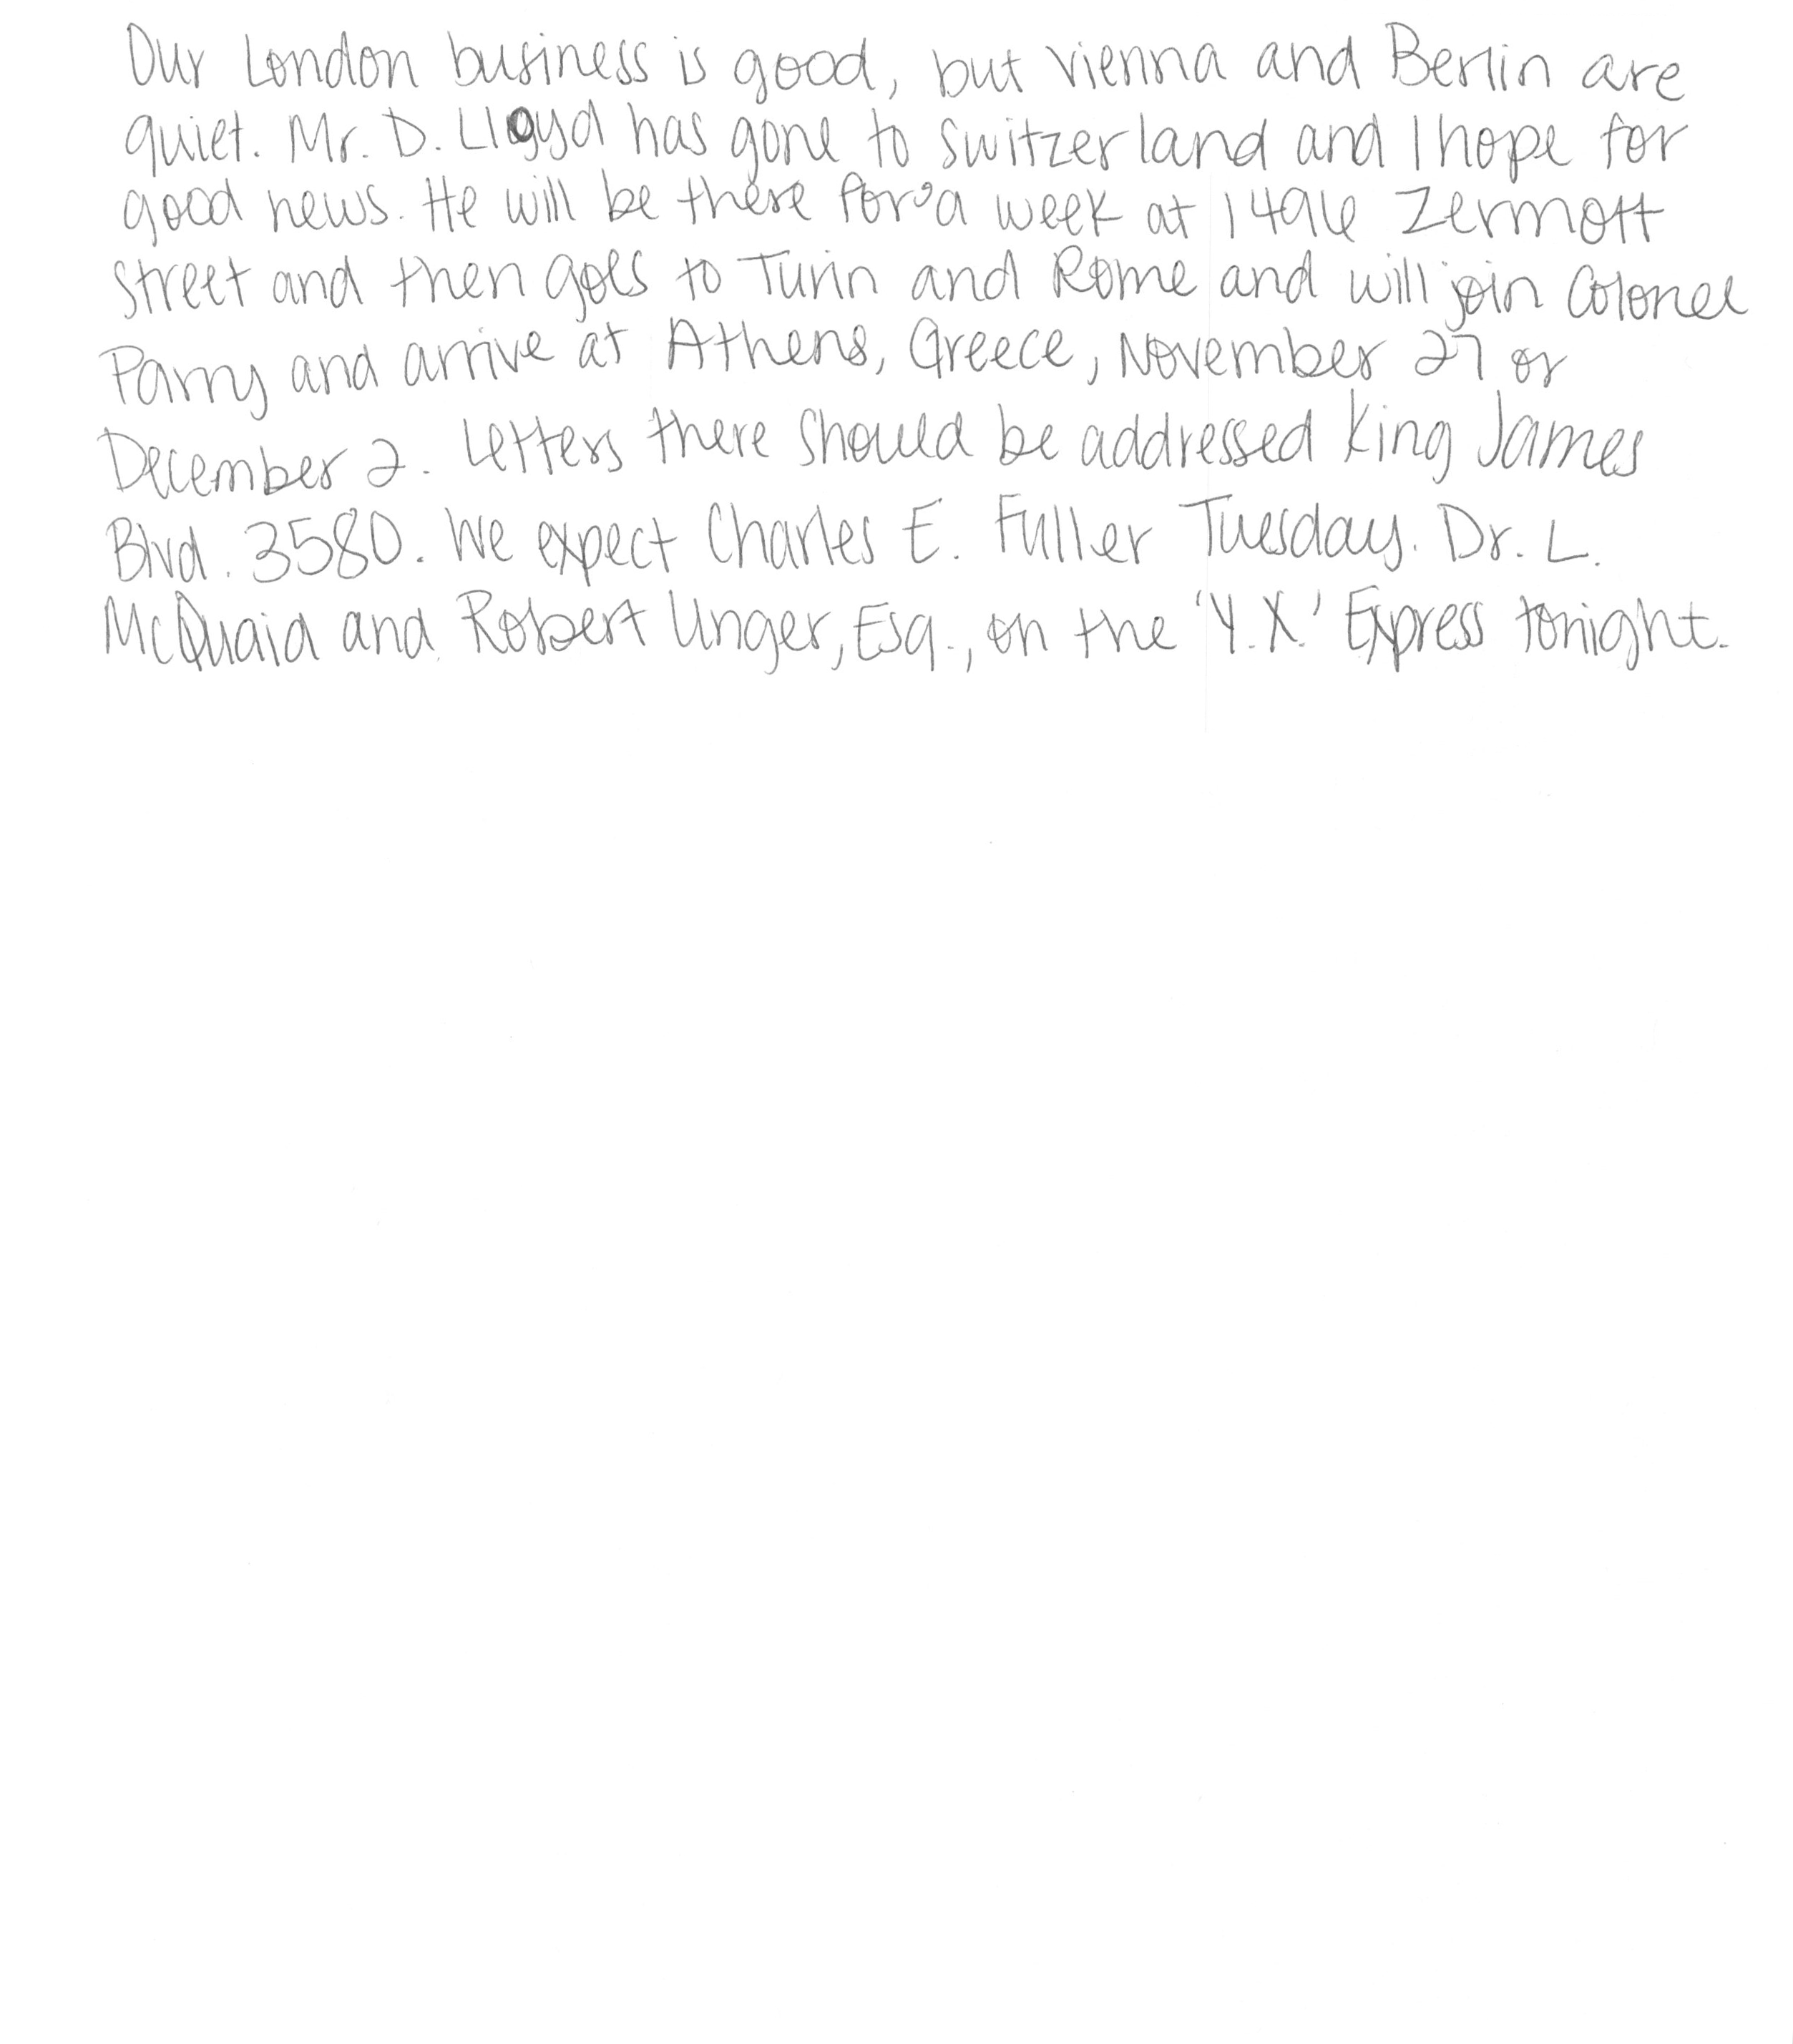 Our London business is good, but Vienna and Berlin are
quiet. Mr. D. Lloyd has gone to Switzerland and I hope for
good news. He will be there for a week at 1496 Zermott
street and then goes to Turin and Rome and will join Colonel
Parry and arrive at Athens, Greece, November 27 or
December 2. Letters there should be addressed King James
Blvd. 3580. We expect Charles E. Fuller Tuesday. Dr. L.
McQuaid and Robert Unger, Esq., on the 'Y.X.' Express tonight.